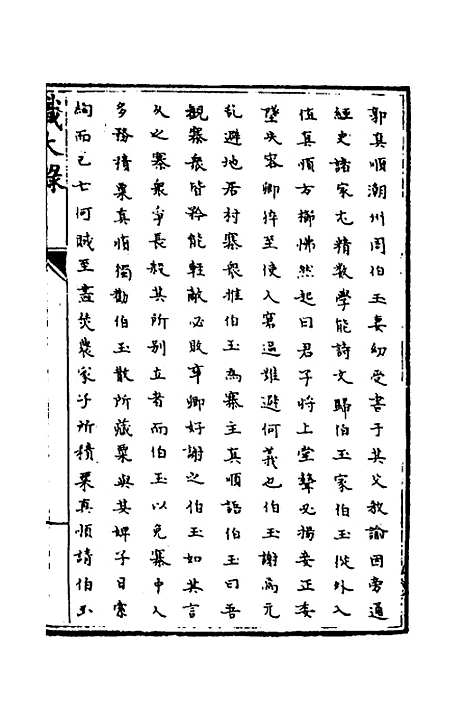 郭真順潮州周伯玉妻幼受書于其父教諭因旁通
經史諸家尤精數學能詩文歸伯玉家伯玉從外入
值真順方擲怫然起曰君子將上堂聲必揚妾正委
墜失容卿猝至使入窘迫難避何義也伯玉謝焉元
亂避地居村寨衆推伯玉為寨主真順語伯玉曰吾
觀寨衆皆矜能輕敵必敗事卿好謝之伯玉如其言
久之寨衆爭長殺其所別立者而伯玉以免寨中人
多務積粟真順獨勸伯玉散所藏粟與其婢子日索
綯而已亡何賊至盡焚農家子所積粟真順請伯玉